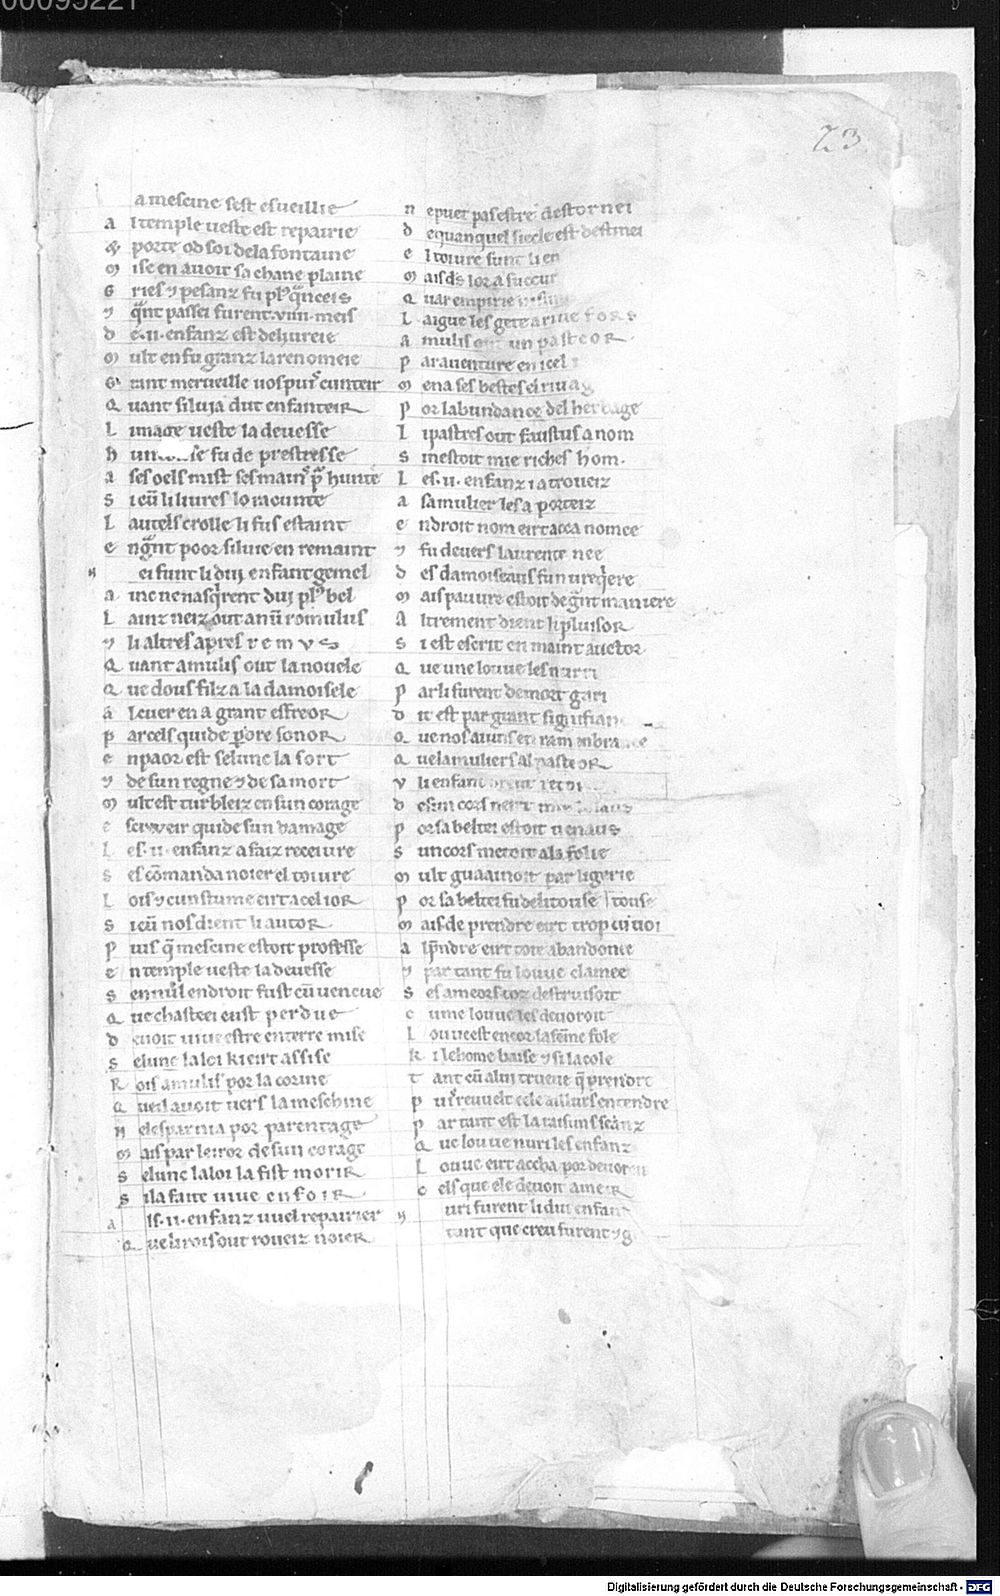 00095221
23
a mescine sest esueillie
A l temple ueste est repairie
& porte od soi de la fontaine
M ise en auoit sa chane plaine
G ries ⁊ pesanz fu plꝰ q̃nceis
⁊ q̃nt passei furent .uiiii. meis
D e .ii. enfanz est deliureie
M ult en fu granz la renomeie
G rant merueille uos puis cunteir
Q uant siluia dut enfanteir
L image ueste la deuesse
h un fu de prestresse
a ses oels mist ses mains p̃ hunte
S i cũ li liures lo racunte
L autels crolle li fus estaint
e n g̃nt poor siluie en remaint
N ei sunt li dui enfant gemel
a inc ne nasq̃rent dui plꝰ bel
L ainz neiz out a nũ romulus
⁊ li altres apres remus
Q uant amulis out la nouele
Q ue dous filz a la damoisele
a l cuer en a grant esfreor
p ar cels quide p̱dre sonor
e n paor est selunc la sort
⁊ de sun regne ⁊ de sa mort
M ult est turbleiz en sun corage
e scheueir quide sun damage
L es .ii. enfanz a faiz receiure
S es cõmanda noier el toiure
L ois ⁊ cunstume eirt a cel ior
S i cũ nos dient li autor
P uis q̃ mescine estoit professe
e n temple ueste la deuesse
S en nul endroit fust cũuencue
Q ue chasteei eust perdue
D euoit uiue estre en terre mise
S elunc la loi ki eirt assise
R ois amulis por la corine
Q ueil auoit uers la meschine
N ele sparnia por parentage
M ais par leiror de sun corage
S elunc la loi la fist morir
S i la faite uiue enfoir
A ls .ii. enfanz uuel repairier
Q ue li rois out roueiz noier
N e puet pas estre destornei
D equanquel siecle est destinei
e l toiure sunt li en
M ais ds lor a succur
Q uar empirie
L aigue les gete a riue fors
a mulis out un pasteor
P ar auenture en icel
M ena ses bestes el riuag
P or labundance del herbage
L i pastres out faustus a nom
S i nestoit mie riches hom.
L es .ii. enfanz i a troueiz
a sa mulier les a porteiz
e ndroit nom eirt acca nomee
⁊ fu deuers laurente nee
D es damoiseaus fun ureq̃ere
M ais pauure estoit de g̃nt maniere
A ltrement dient li plusor
S i est escrit en maint auctor
Q ue une louue les nurri
P ar li furent de mort gari
D it est par grant signifian
Q ue nos aiuns en ramenbrance
Q ue la muliers al pasteor
V li enfant
D e sun cors
P or sa beltei estoit uenaus
S un cors metoit a la folie
M ult guaainoit par ligerie
P or sa beltei fu delitouse
M ais de prendre eirt trop cuitoi
A l p̃ndre eirt tote abandonie
⁊ par tant fu louue clamee
S es ameors toz destruisoit
C ume louue les deuoroit
L ouue est encor la fẽme fole
K i lehome baise ⁊ si lacole
T ant cũ alui trueue q̃ prendre
P uis reuuelt cele aillurs entendre
P ar tant est la raisuns scãnz
Q ue louue nuri les enfanz
L ouue eirt accha por deuoreir
C els que ele deuoit amer
N uri furent li dui enfant
tant que creu furent ⁊ g
Digitalisierung gefördert durch die Deutsche Forschungsgemeinschaft - DFG